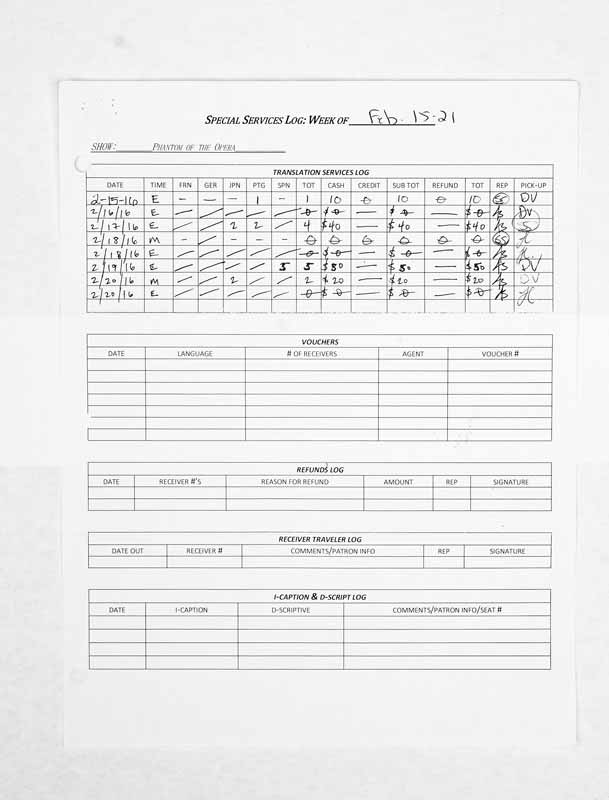 SPECIAL SERVICES LOG: WEEK OF Feb. 15-21
SHOW: PHANTOM OF THE OPERA
TRANSLATION SERVICES LOG
DATE TIME FRN GER JPN PTG SPN TOT CASH CREDIT SUB TOT REFUND TOT REP PICK-UP
2-15-16 E - - - 1 - 1 10 0 10 0 10 DV
2/16/16 E / / / / / 0 $0 — $0 — $0 DV
2/17/16 E / / 2 2 / 4 $40 — $40 — $40 S
2/18/16 M - - - - - 0 0 0 0 0 0 H
2/18/16 E / / / / / 0 $0 — $0 — $0
2/19/16 E / / / / 5 5 $50 — $50 — $50 DV
2/20/16 M / / 2 / / 2 $20 — $20 — $20 DV
2/20/16 E / / / / / 0 $0 — $0 — $0 H
VOUCHERS
DATE LANGUAGE # OF RECEIVERS AGENT VOUCHER #
REFUNDS LOG
DATE RECEIVER #'S REASON FOR REFUND AMOUNT REP SIGNATURE
RECEIVER TRAVELER LOG
DATE OUT RECEIVER # COMMENTS/PATRON INFO REP SIGNATURE
I-CAPTION & D-SCRIPT LOG
DATE I-CAPTION D-SCRIPTIVE COMMENTS/PATRON INFO/SEAT #